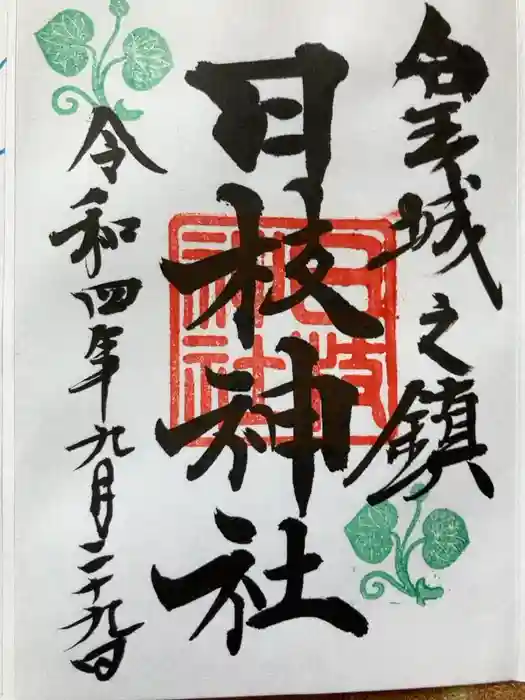 皇城之鎮
日枝神社
日枝神社
令和四年九月二十九日